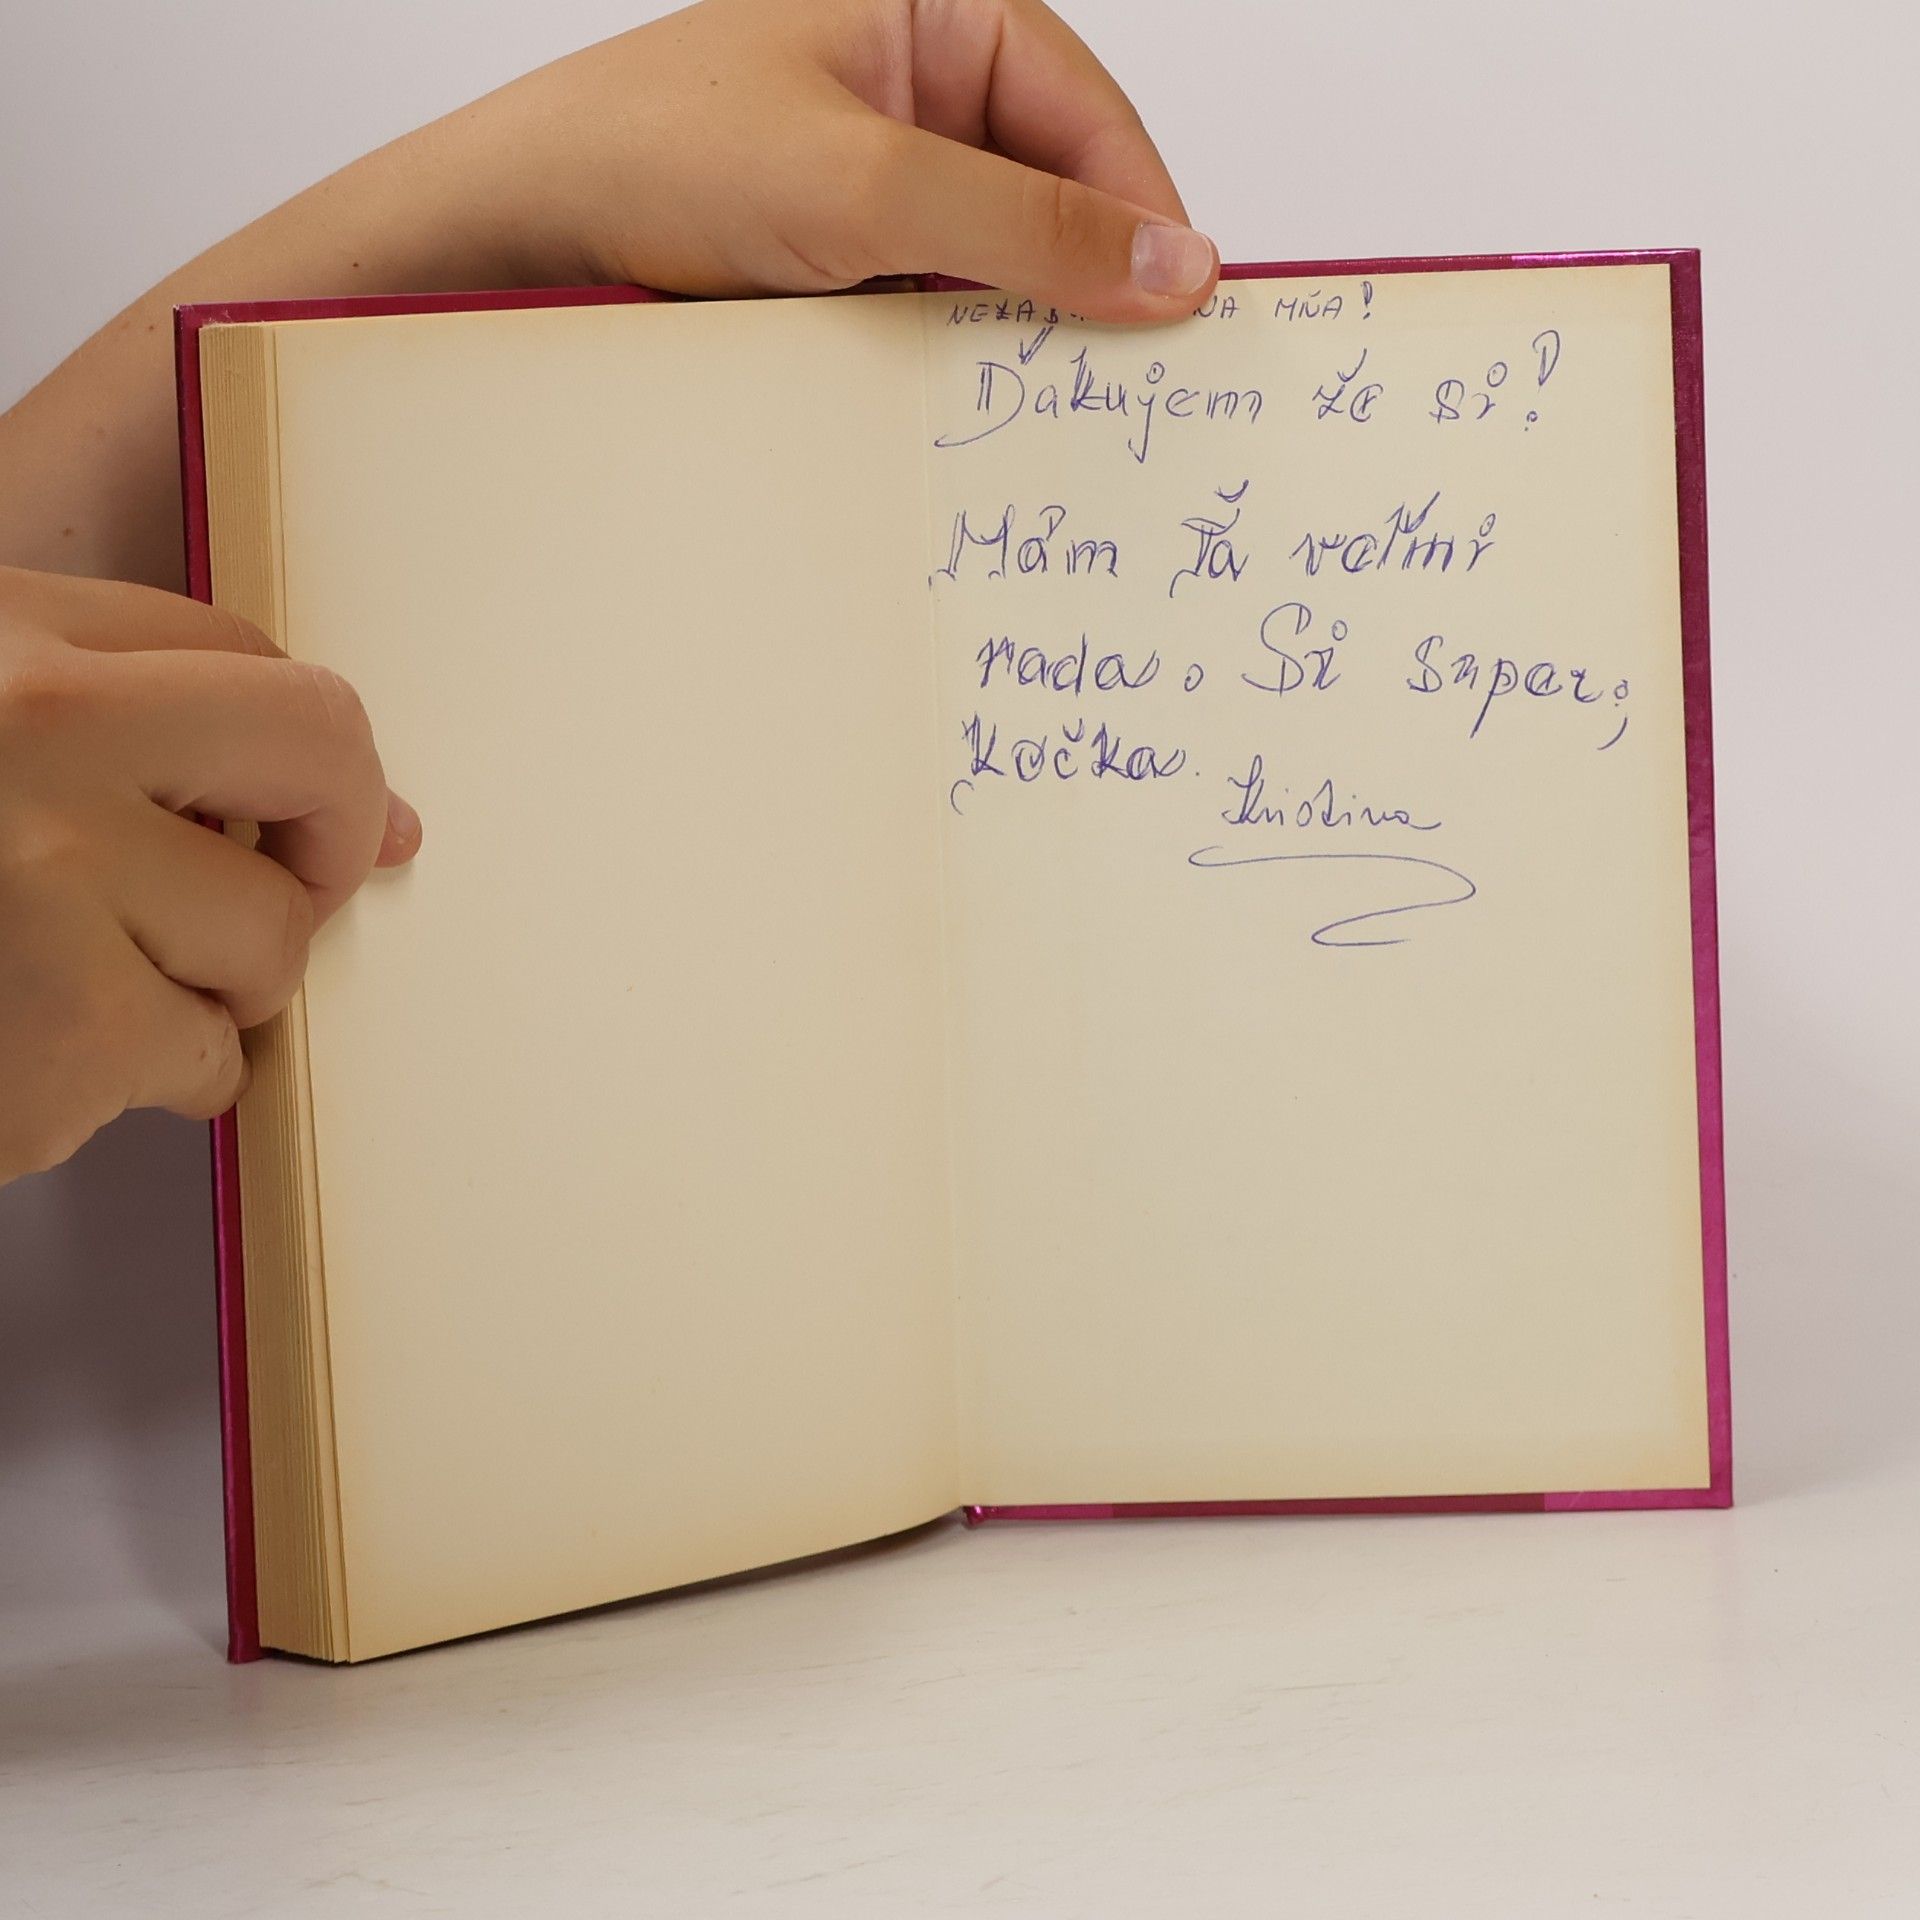 NA MŇA!
Ďakujem že si!
Mám Ťa veľmi
rada. Si super,
kočka.
Kristina